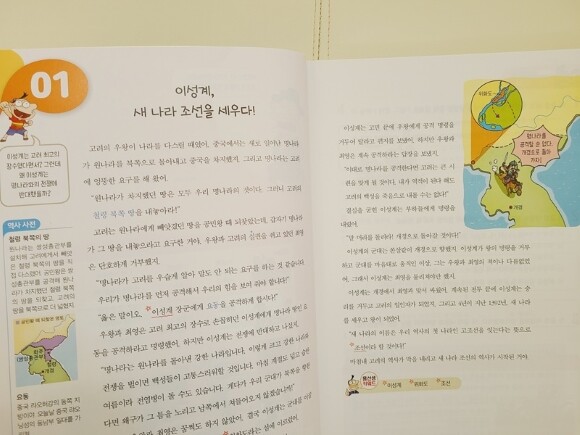 01
이성계,
새 나라 조선을 세우다!
이성계는 고려 최고의
장수였다면서? 그런데
왜 이성계는
명나라와의 전쟁에
반대했을까?
역사 사전
철령 북쪽의 땅
원나라는 쌍성총관부를
설치해 고려에게서 빼앗
은 철령 북쪽의 땅을 직
접 다스렸어. 공민왕은 쌍
성총관부를 공격해 원나
라가 차지했던 철령 북쪽
의 땅을 되찾고, 고려의
땅을 북쪽으로 더 넓혔지.
철령
개경
요동
중국 랴오허강의 동쪽 지
방이야. 오늘날 중국 랴오
닝성의 동남부 일대를 가
고려의 우왕이 나라를 다스릴 때였어. 중국에서는 새로 일어난 명나라
가 원나라를 북쪽으로 몰아내고 중국을 차지했지. 그리고 명나라는 고려
에 엉뚱한 요구를 해 왔어.
"원나라가 차지했던 땅은 모두 우리 명나라의 것이다. 그러니 고려의
철령 북쪽 땅을 내놓아라!"
고려는 원나라에게 빼앗겼던 땅을 공민왕 때 되찾았는데, 갑자기 명나라
가 그 땅을 내놓으라고 요구한 거야. 우왕과 고려의 실권을 쥐고 있던 최영
은 단호하게 거부했지.
"명나라가 고려를 우습게 알아 말도 안 되는 요구를 하는 것 같습니다.
우리가 명나라를 먼저 공격해서 우리의 힘을 보여 줘야 합니다!"
"옳은 말이오. 이성계 장군에게 요동을 공격하게 합시다!"
우왕과 최영은 고려 최고의 장수로 손꼽히던 이성계에게 명나라 땅인 요
동을 공격하라고 명령했어. 하지만 이성계는 전쟁에 반대하고 나섰지.
"명나라는 원나라를 몰아낸 강한 나라입니다. 이렇게 크고 강한 나라와
전쟁을 벌이면 백성들이 고통스러워질 것입니다. 마침 계절도 덥고 습한
여름이라 전염병이 돌 수도 있습니다. 게다가 우리 군대가 요동을 향한
다면 왜구가 그 틈을 노리고 남쪽에서 쳐들어오지 않겠습니까?"
이성계는 고민 끝에 우왕에게 공격 명령을
거두어 달라고 편지를 보냈어. 하지만 우왕과
최영은 계속 공격하라는 답장을 보냈지.
"이대로 명나라를 공격한다면 고려는 큰 시
련을 겪게 될 것이다. 내가 역적이 된다 해도
고려의 백성을 죽음으로 내몰 수는 없다!"
결심을 굳힌 이성계는 부하들에게 명령을
내렸어.
"말 머리를 돌려라! 개경으로 돌아갈 것이다!"
이성계의 군대는 쏜살같이 개경으로 향했지. 이성계가 왕의 명령을 거부
하고 군대를 마음대로 움직인 이상, 그는 우왕과 최영의 적이나 다름없었
어. 그래서 이성계는 최영을 물리쳐야만 했지.
이성계는 개경에서 최영과 맞서 싸웠어. 계속된 전투 끝에 이성계는 승
리를 거두고 고려의 일인자가 되었지. 그리고 4년이 지난 1392년, 새 나라
를 세우고 왕이 되었어.
"새 나라의 이름은 우리 역사의 첫 나라인 고조선을 잇는다는 뜻으로
조선이라 할 것이다!"
마침내 고려의 역사가 막을 내리고 새 나라 조선의 역사가 시작된 거야.
위화도
명나라를
공격할 순 없다.
개경으로 돌아
가자!
개경
용선생 키워드
이성계
위화도
조선